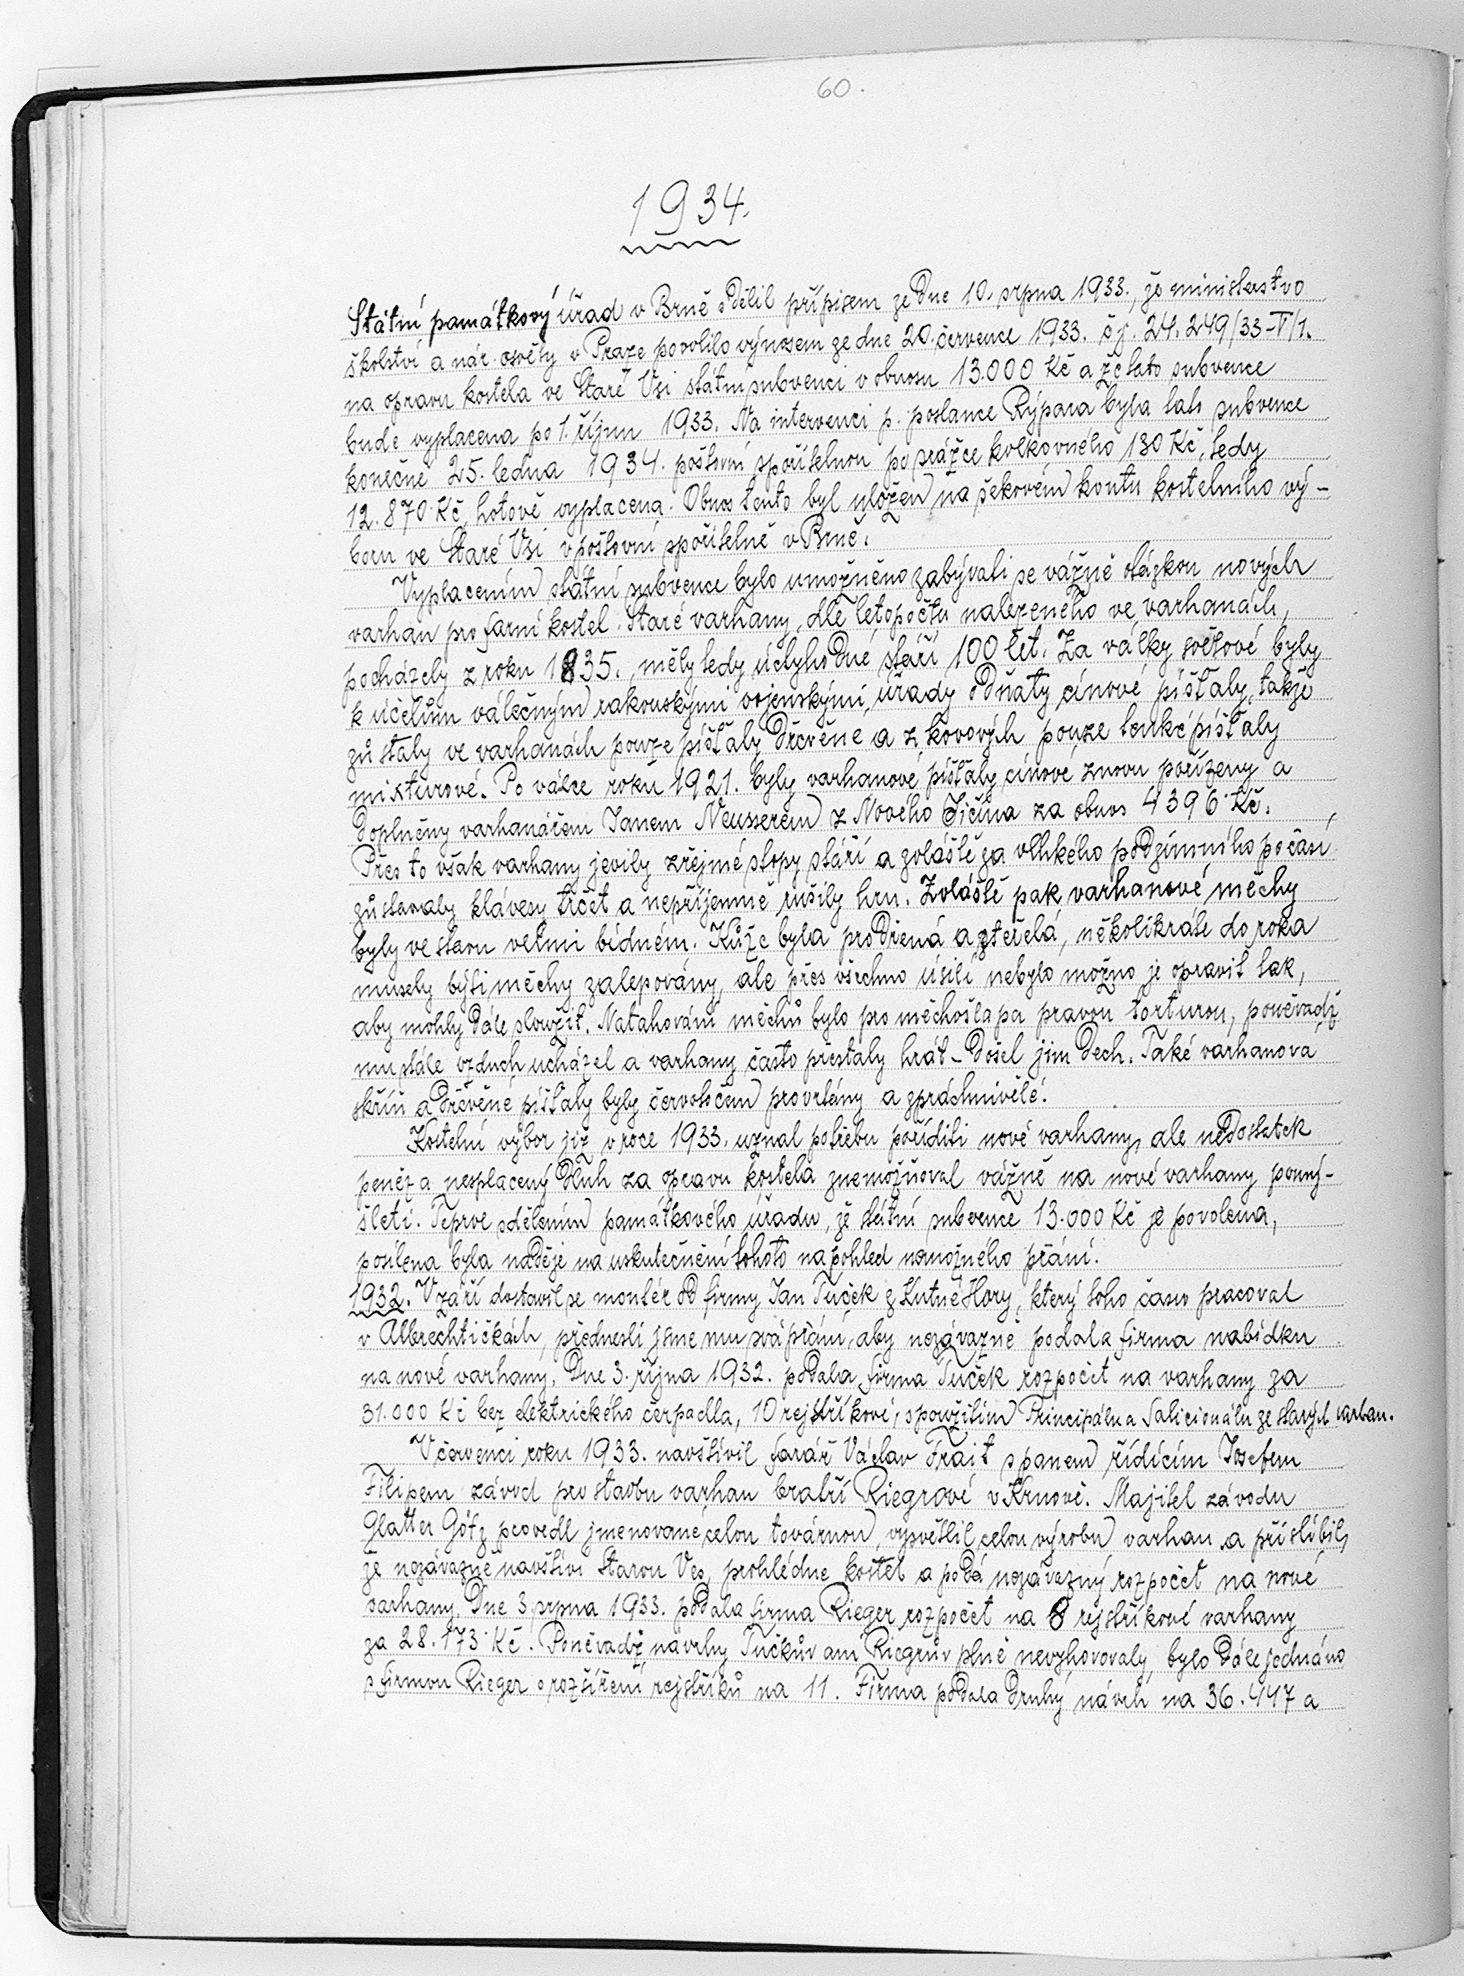 60.
1934.
Státní památkový úřad v Brně sdělil přípisem ze dne 10. srpna 1933., že ministerstvo
školství a nár. osvěty v Praze povolilo výnosem ze dne 20. července 1933. čj. 24.249/33-V/1.
na opravu kostela ve Staré Vsi státní subvenci v obnosu 13.000 Kč a že tato subvence
bude vyplacena po 1. říjnu 1933. Na intervenci p. poslance Rýpara byla tato subvence
konečně 25. ledna 1934. poštovní spořitelnou po srážce kolkovného 130 Kč, tedy
12.870 Kč, hotově vyplacena. Obnos tento byl uložen na šekovém kontu kostelního vý-
boru ve Staré Vsi v poštovní spořitelně v Brně.
Vyplacením státní subvence bylo umožněno zabývati se vážně otázkou nových
varhan pro farní kostel. Staré varhany, dle letopočtu nalezeného ve varhanách,
pocházely z roku 1835., měly tedy úctyhodné stáří 100 let. Za války světové byly
k účelům válečným rakouskými vojenskými úřady odňaty cínové píšťaly, takže
zůstaly ve varhanách pouze píšťaly dřevěné a z kovových pouze tenké píšťaly
mixturové. Po válce roku 1921. byly varhanové píšťaly cínové znovu pořízeny a
doplněny varhanářem Janem Neusserem z Nového Jičína za obnos 4396 Kč.
Přes to však varhany jevily zřejmé stopy stáří a zvláště za vlhkého podzimního počasí
zůstávaly klávesy trčet a nepříjemně rušily hru. Zvláště pak varhanové měchy
byly ve stavu velmi bídném. Kůže byla prodřená a zteřelá, několikráte do roka
musely býti měchy zalepovány, ale přes všechno úsilí nebylo možno je opravit tak,
aby mohly dále sloužit. Natahování měchů bylo pro měchošlapa pravou torturou, poněvadž
mu stále vzduch ucházel a varhany často přestaly hrát - došel jim dech. Také varhanová
skříň a dřevěné píšťaly byly červotočem provrtány a zpráchnivělé.
Kostelní výbor již v roce 1933. uznal potřebu poříditi nové varhany, ale nedostatek
peněz a nesplacený dluh za opravu kostela znemožňoval vážně na nové varhany pomý-
šleti. Teprve sdělením památkového úřadu, že státní subvence 13.000 Kč je povolena,
posílena byla naděje na uskutečnění tohoto na pohled nemožného přání.
1932. V září dostavil se montér od firmy Jan Tuček z Kutné Hory, který toho času pracoval
v Albrechtičkách, přednesli jsme mu svá přání, aby nezávazně podala firma nabídku
na nové varhany. Dne 3. října 1932. podala firma Tuček rozpočet na varhany za
31.000 Kč bez elektrického čerpadla, 10 rejstříkové, s použitím Principálu a Salicionálu ze starých varhan.
V červenci roku 1933. navštívil farář Václav Frait s panem řídícím Josefem
Filipem závod pro stavbu varhan bratří Riegrové v Krnově. Majitel závodu
Glatter Götz provedl jmenované celou továrnou, vysvětlil celou výrobu varhan a přislíbil,
že nezávazně navštíví Starou Ves, prohlédne kostel a podá nezávazný rozpočet na nové
varhany. Dne 3. srpna 1933. podala firma Rieger rozpočet na 8 rejstříkové varhany
za 28.173 Kč. Poněvadž návrhy Tučkův ani Riegrův plně nevyhovovaly, bylo dále jednáno
s firmou Rieger o rozšíření rejstříků na 11. Firma podala druhý návrh na 36.447 a